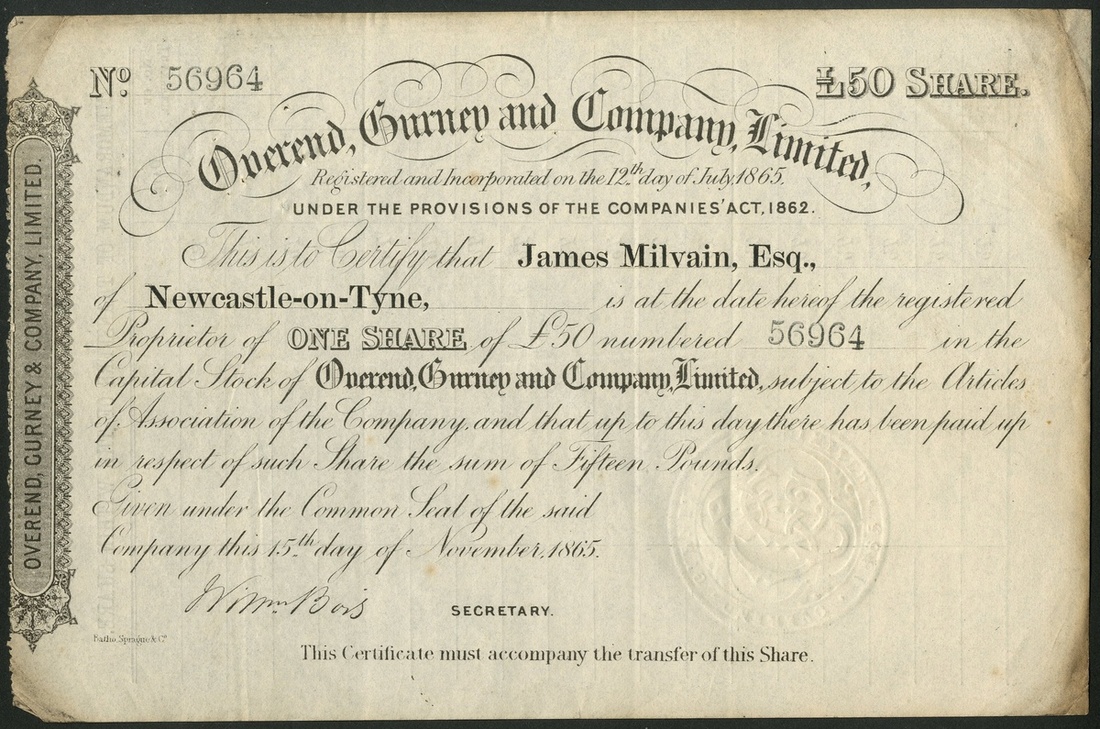 No. 56964
£50 SHARE.
Overend, Gurney and Company, Limited,
Registered and Incorporated on the 12th day of July, 1865.
UNDER THE PROVISIONS OF THE COMPANIES' ACT, 1862.
This is to Certify that James Milvain, Esq.,
of Newcastle-on-Tyne, is at the date hereof the registered
Proprietor of ONE SHARE of £50 numbered 56964 in the
Capital Stock of Overend, Gurney and Company, Limited, subject to the Articles
of Association of the Company, and that up to this day there has been paid up
in respect of such Share the sum of Fifteen Pounds.
Given under the Common Seal of the said
Company this 15th day of November, 1865.
Wm Bois
SECRETARY.
Batho, Sprague & Co.
This Certificate must accompany the transfer of this Share.
OVEREND, GURNEY & COMPANY, LIMITED.